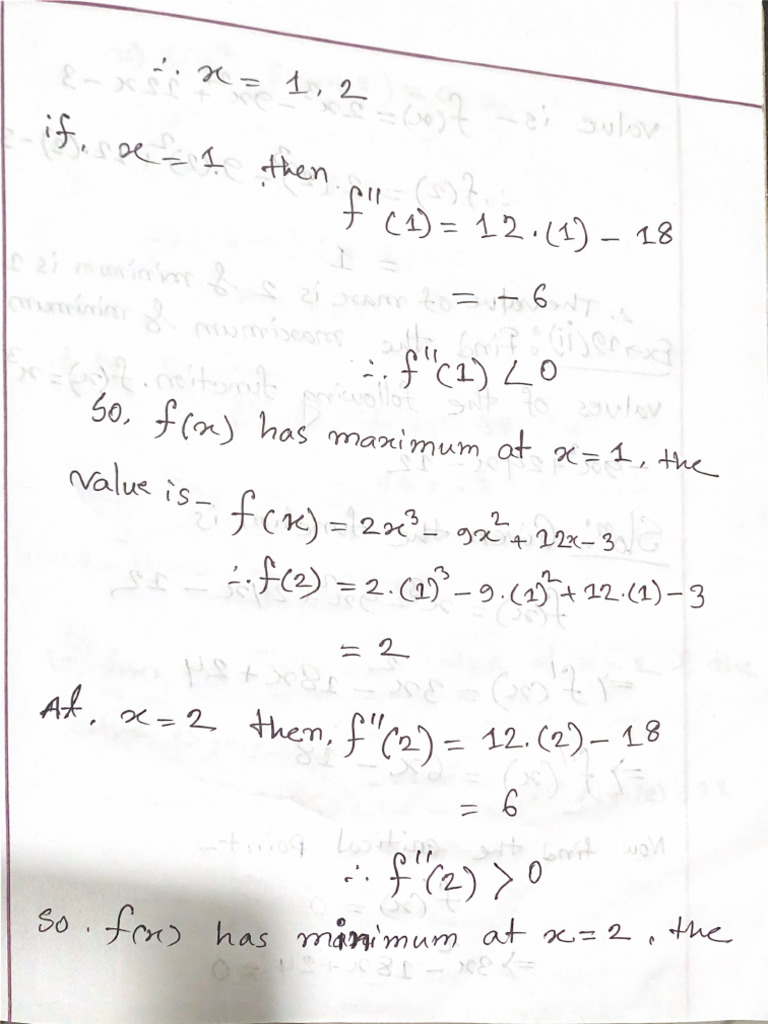 ∴ x = 1, 2
if, x = 1, then
f''(1) = 12·(1) − 18
= − 6
∴ f''(1) < 0
So, f(x) has maximum at x = 1, the
value is − f(x) = 2x³ − 9x² + 12x − 3
∴ f(2) = 2·(1)³ − 9·(1)² + 12·(1) − 3
= 2
At, x = 2 then, f''(2) = 12.(2) − 18
= 6
∴ f''(2) > 0
So. f(x) has minimum at x = 2, the